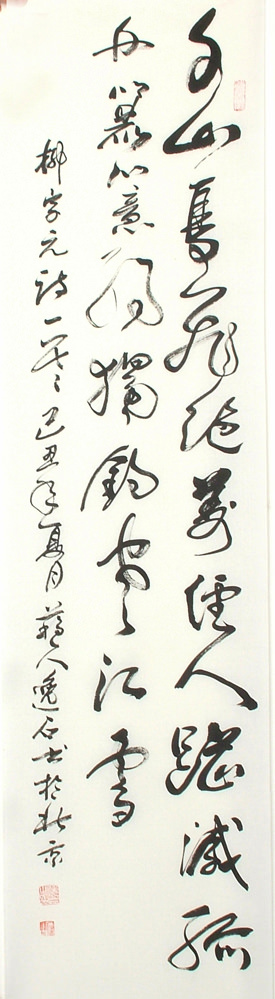 千山鳥飛絕萬徑人蹤滅孤
舟簑笠翁獨釣寒江雪
柳宗元詩一首己丑年夏月人石書於北京